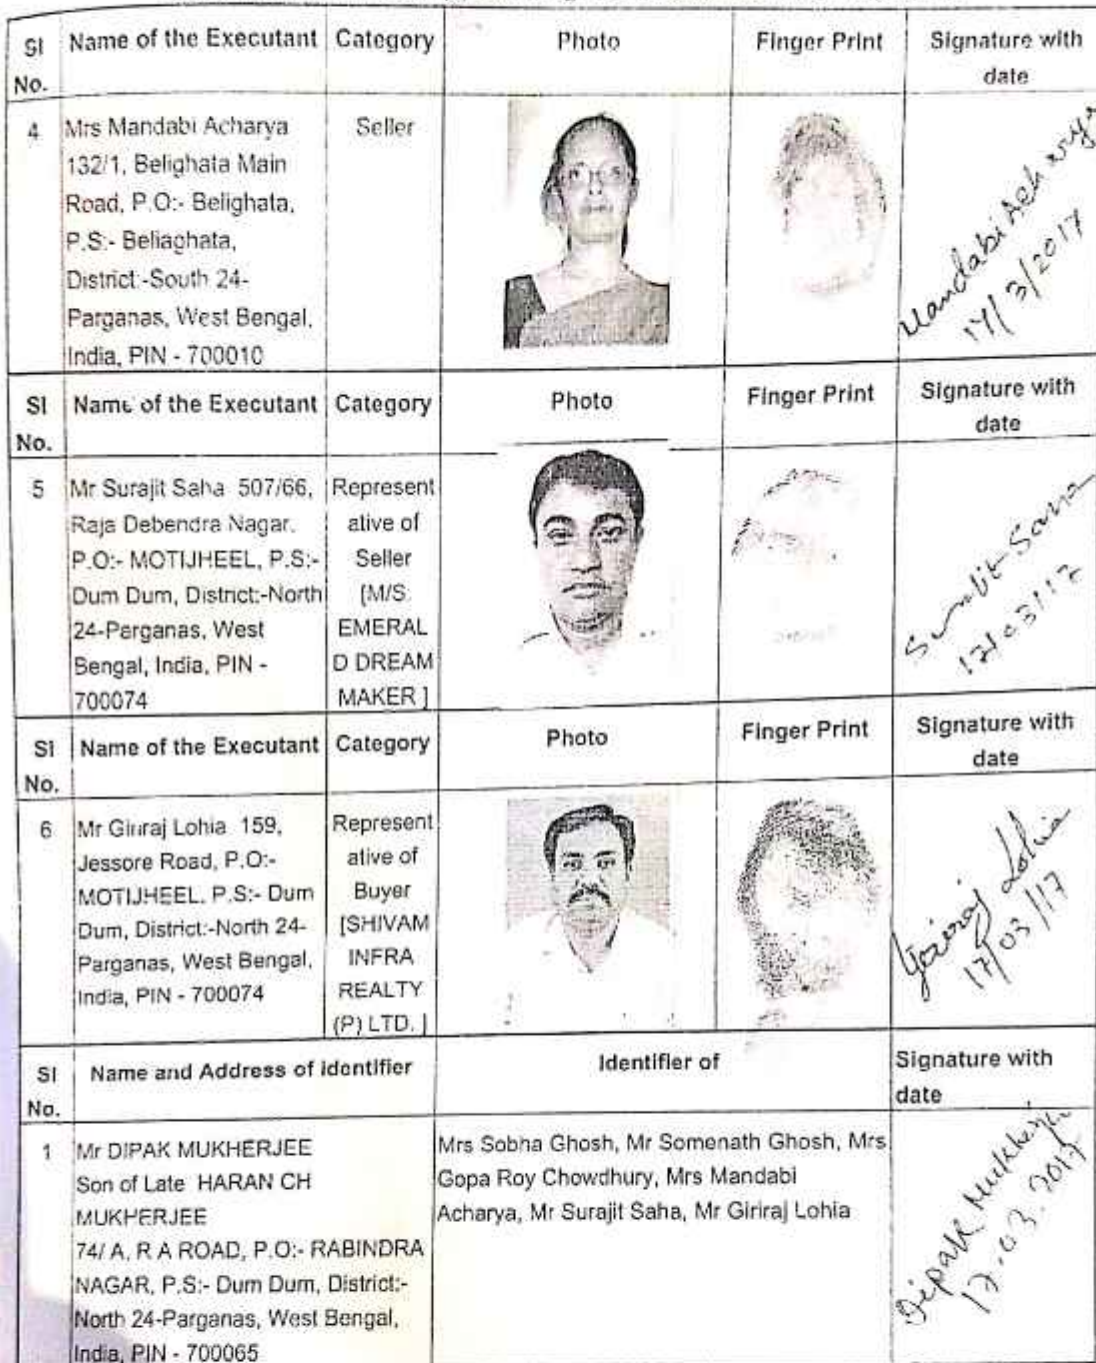 Sl No. Name of the Executant Category Photo Finger Print Signature with date
4 Mrs Mandabi Acharya Seller
132/1, Belighata Main
Road, P.O:- Belighata,
P.S:- Beliaghata,
District:-South 24-
Parganas, West Bengal,
India, PIN - 700010
Mandabi Acharya
17/3/2017
Sl No. Name of the Executant Category Photo Finger Print Signature with date
5 Mr Surajit Saha 507/66,
Raja Debendra Nagar,
P.O:- MOTIJHEEL, P.S:-
Dum Dum, District:-North
24-Parganas, West
Bengal, India, PIN -
700074
Represent
ative of
Seller
[M/S
EMERAL
D DREAM
MAKER ]
Surajit Saha
17/03/17
Sl No. Name of the Executant Category Photo Finger Print Signature with date
6 Mr Giriraj Lohia 159,
Jessore Road, P.O:-
MOTIJHEEL, P.S:- Dum
Dum, District:-North 24-
Parganas, West Bengal,
India, PIN - 700074
Represent
ative of
Buyer
[SHIVAM
INFRA
REALTY
(P) LTD. ]
Giriraj Lohia
17/03/17
Sl No. Name and Address of identifier Identifier of Signature with date
1 Mr DIPAK MUKHERJEE
Son of Late HARAN CH
MUKHERJEE
74/ A, R A ROAD, P.O:- RABINDRA
NAGAR, P.S:- Dum Dum, District:-
North 24-Parganas, West Bengal,
India, PIN - 700065
Mrs Sobha Ghosh, Mr Somenath Ghosh, Mrs
Gopa Roy Chowdhury, Mrs Mandabi
Acharya, Mr Surajit Saha, Mr Giriraj Lohia
Dipak Mukherjee
17.03.2017